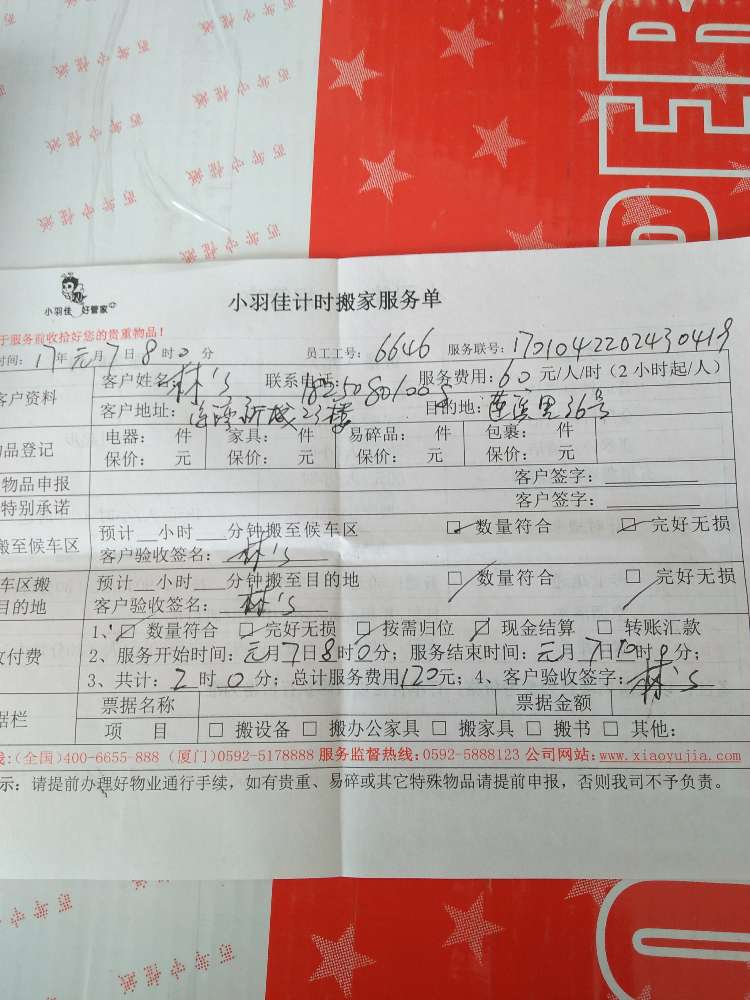 小羽佳 好管家
小羽佳计时搬家服务单
于服务前收拾好您的贵重物品！
时间：17年元月7日8时0分 员工工号：6646 服务联号：1701042202430419
客户资料 客户姓名：林's 联系电话： 服务费用：60元/人/时（2小时起/人）
客户地址：新城23楼 目的地：莲溪里36号
物品登记 电器： 件 家具： 件 易碎品： 件 包裹： 件
保价： 元 保价： 元 保价： 元 保价： 元
物品申报 客户签字：
特别承诺 客户签字：
搬至候车区 预计__小时__分钟搬至候车区 ☑数量符合 ☑完好无损
客户验收签名：林's
车区搬 预计__小时__分钟搬至目的地 ☑数量符合 ☑完好无损
目的地 客户验收签名：林's
1、☑数量符合 ☑完好无损 ☑按需归位 ☑现金结算 □转账汇款
付费 2、服务开始时间：元月7日8时0分；服务结束时间：元月7日10时0分；
3、共计：2时0分；总计服务费用120元；4、客户验收签字：林's
据栏 票据名称 票据金额
项 目 □搬设备 □搬办公家具 □搬家具 □搬书 □其他：
线：（全国）400-6655-888（厦门）0592-5178888 服务监督热线：0592-5888123 公司网站：www.xiaoyujia.com
示：请提前办理好物业通行手续，如有贵重、易碎或其它特殊物品请提前申报，否则我司不予负责。